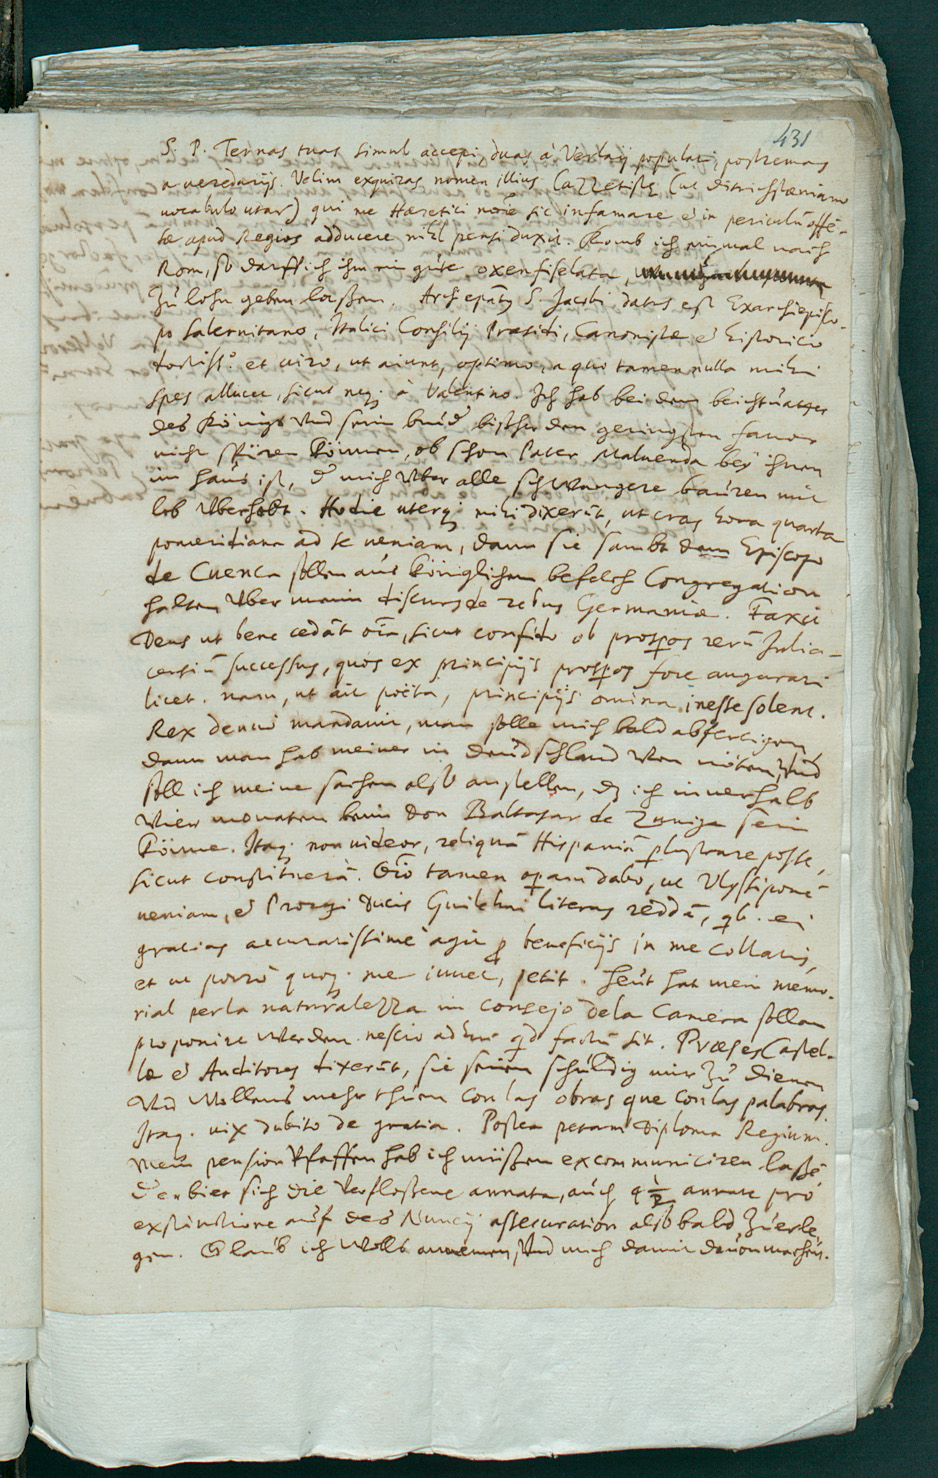 431
S. P. Ternas tuas simul accepi, duas à populari, postremas
a veredarijs. Velim exquiras nomen illius Cazzetistæ (ut ditrichstæniano
vocabulo utar) qui me Hæretici nõie sic infamare et in periculũ offẽ-
sæ apud Regios adducere nihil pensi duxit. Komb ich einmal nach
Rom, so darff ich ihm ein gute
zu lohn geben laßen. Archiepãtq S. Jacobi datus est Exarchiepisco-
po Salernitano, Italici Consilij Præsidi, Canonistæ et historico
doctiss.o et viro, ut aiunt, optimo, a quo tamen nulla mihi
spes allucet, sicut neq. à Valentino. Ich hab bei dem beichtuatter
des Königs Vnd seim bruder bißher den geringsten fauor
nicht spüren können, ob schon Pater Maluenda bey ihnen
im haus ist, d mich Vber alle schwangere bauren mit
lob Vberhebt. Hodie uterq. mihi dixerũt, ut cras hora quarta
pomeridiana ad se ueniam, dann sie sambt dem Episcopo
de Cuenca sollen aus königlichem befelch Congregation
halten Vber mein discurs de rebus Germaniæ. Faxit
Deus ut bene cedãt oĩa, sicut confido ob prosperos rerũ Julia-
censiũ successus, quos ex principijs prosperos fore augurari
licet. nam, ut ait poëta, principijs omina inesse solent.
Rex denuò mandauit, man solle mich bald abfertigen
dann man hab meiner in deudschland Von nöten, Vnd
soll ich meine sachen also anstellen, dz ich innerhalb
Vier monaten beim Don Baltasar de Zuniga sein
könne. Itaq. non uideor, reliquã Hispaniã plustrare posse,
sicut constituerã. Oĩo tamen operam dabo, ut Vlyssiponẽ
ueniam, et Proregi ducis Guilelmi literas reddã, qb. ei
gratias accuratissimè agit p beneficijs in me collatis,
et ut porrò quoq. me iuuet, petit. Heut hat mein memo-
rial per la naturalezza im consejo de la Camera sollen
proponirt werden. nescio adhuc qd factũ sit. Præses Castel-
læ et Auditores dixerũt, sie seien schuldig mir zu dienen
Vnd Wollens mehr thuen con las obras que con las palabras.
Itaq. uix dubito de gratia. Postea petam diploma Regium.
Mein pension Pfaffen hab ich müßen excommuniciren laßẽ
Der biet sich die Verfloßene annata, auch 4 1/2 annate pro
extinctione auf des Nuncij assecuration alsobald zuerle
gen. Glaub ich Wolls annemen, Vnd mich damit dauon machen.